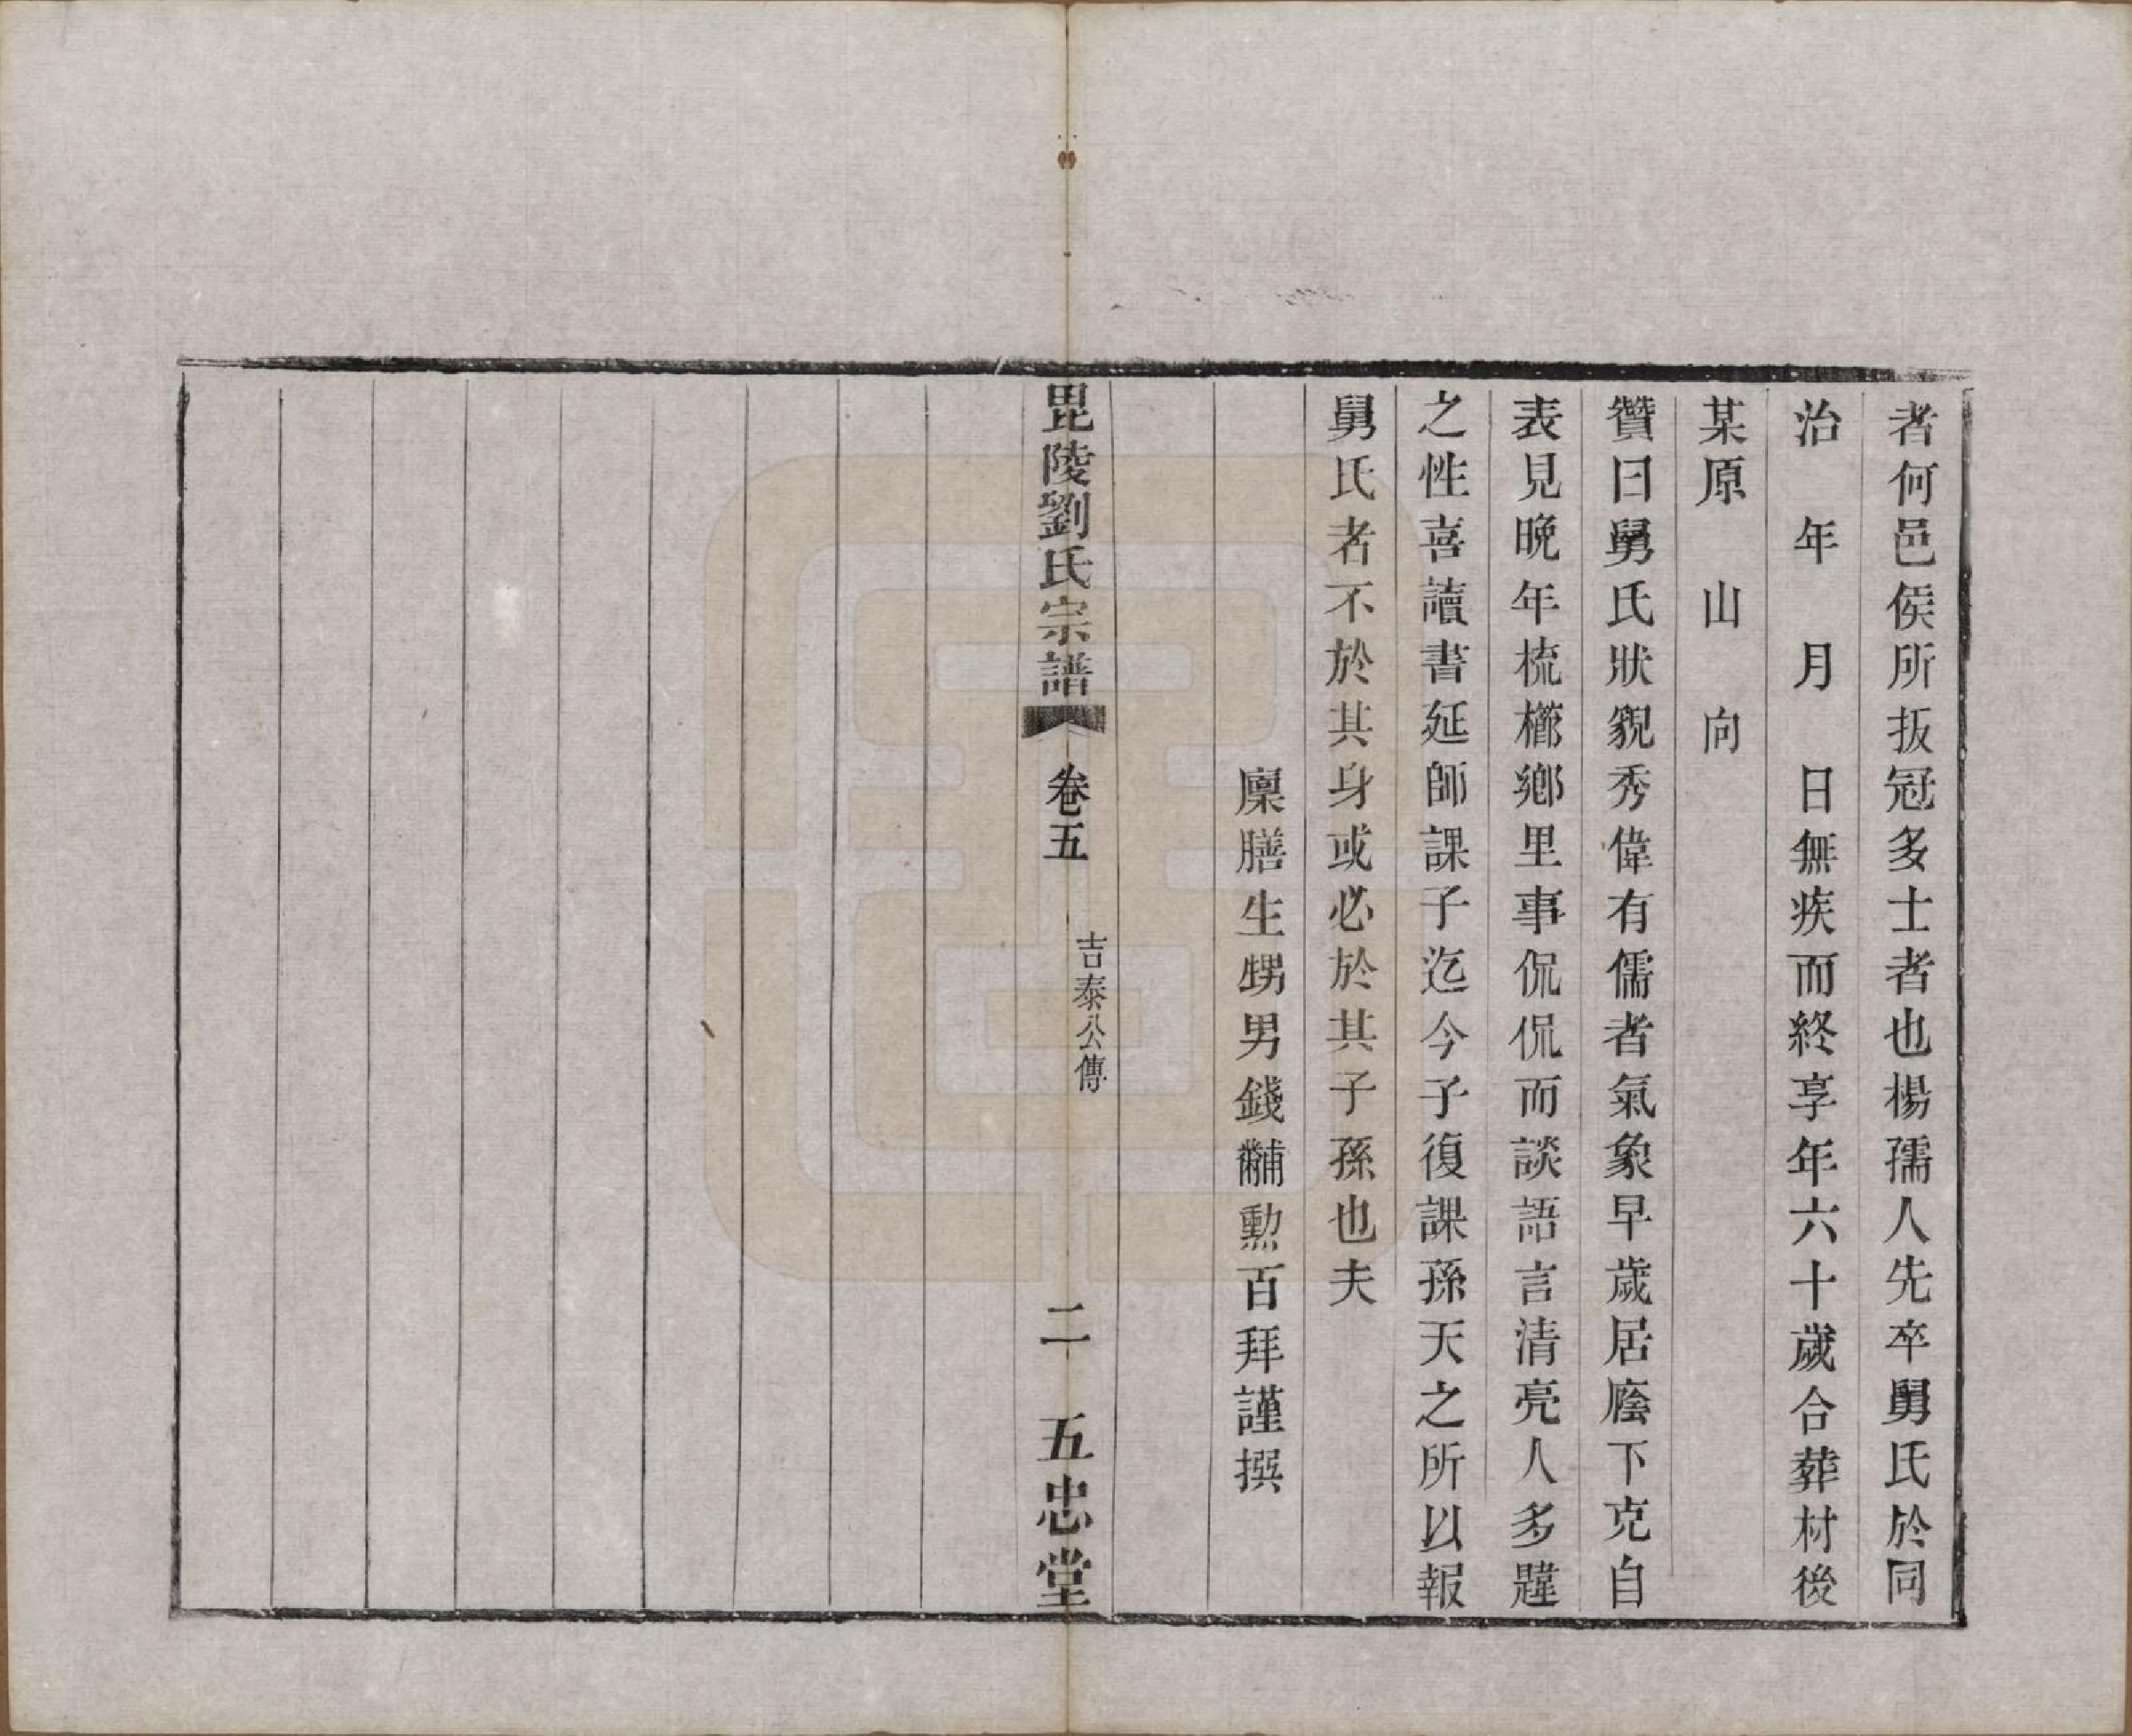 者何邑侯所扳冠多士者也楊孺人先卒舅氏於同
治　年　月　日無疾而終享年六十歲合葬材後
某原　山　向
贊曰舅氏狀貌秀偉有儒者氣象早歲居廕下克自
表見晚年梳櫛鄉里事侃侃而談語言清亮人多韙
之性喜讀書延師課子迄今子復課孫天之所以報
舅氏者不於其身或必於其子孫也夫
廩膳生甥男錢黼勳百拜謹撰
毘陵劉氏宗譜　卷五　吉泰公傳　二　五忠堂